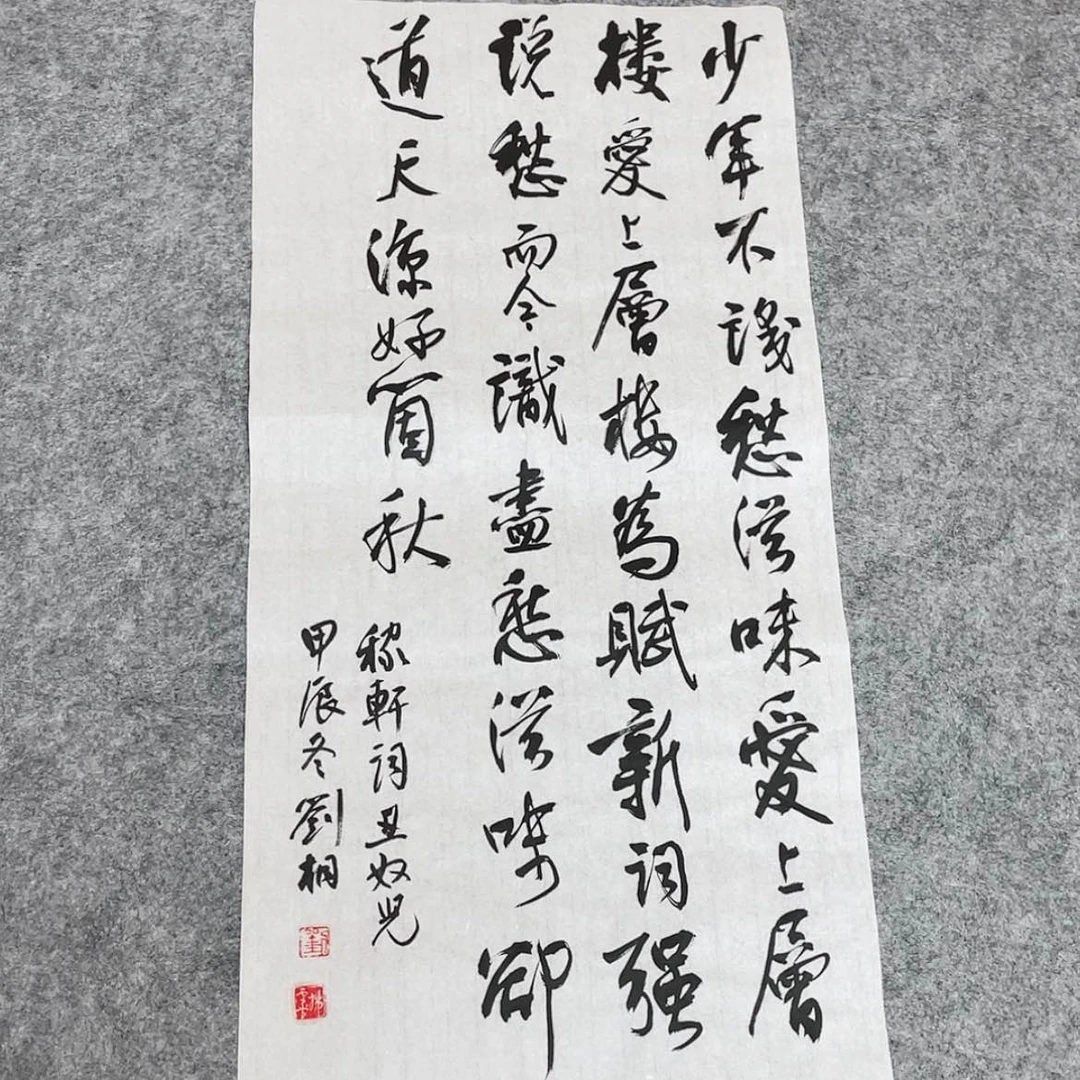 少年不識愁滋味愛上層
樓愛上層樓為賦新詞强
説愁而今識盡愁滋味卻
道天涼好箇秋
稼軒詞丑奴兒
甲辰冬劉